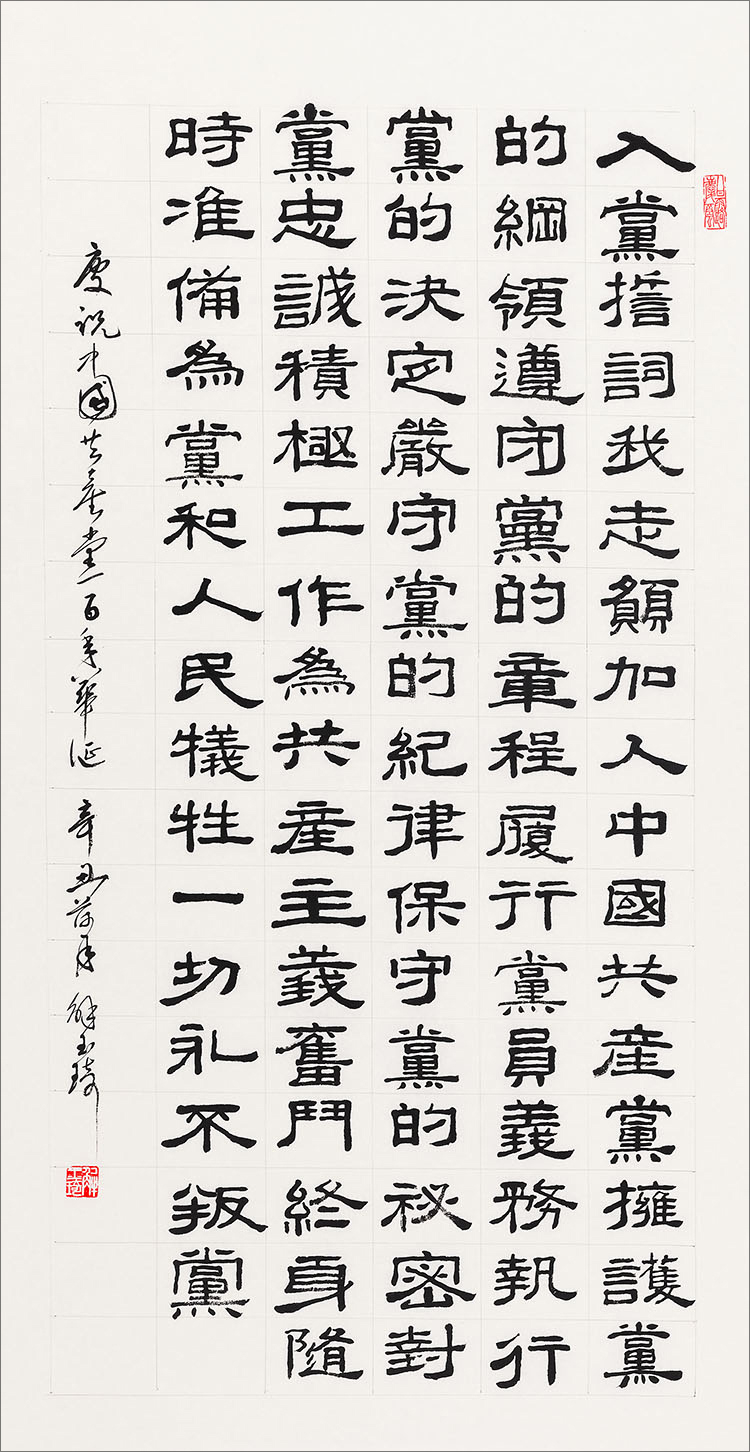 入黨誓詞我志願加入中國共產黨擁護黨
的綱領遵守黨的章程履行黨員義務執行
黨的決定嚴守黨的紀律保守黨的祕密對
黨忠誠積極工作為共產主義奮鬥終身隨
時准備為黨和人民犧牲一切永不叛黨
慶祝中國共產党一百年華誕 辛丑荷月 解玉琦